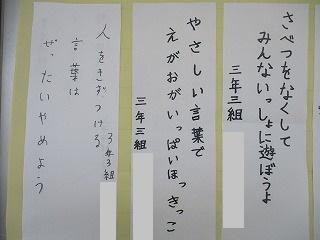 さべつをなくして
みんないっしょに遊ぼうよ
三年三組
やさしい言葉で
えがおがいっぱいほっきっこ
三年三組
人をきずつける
言葉は
ぜったいやめよう
3年3組